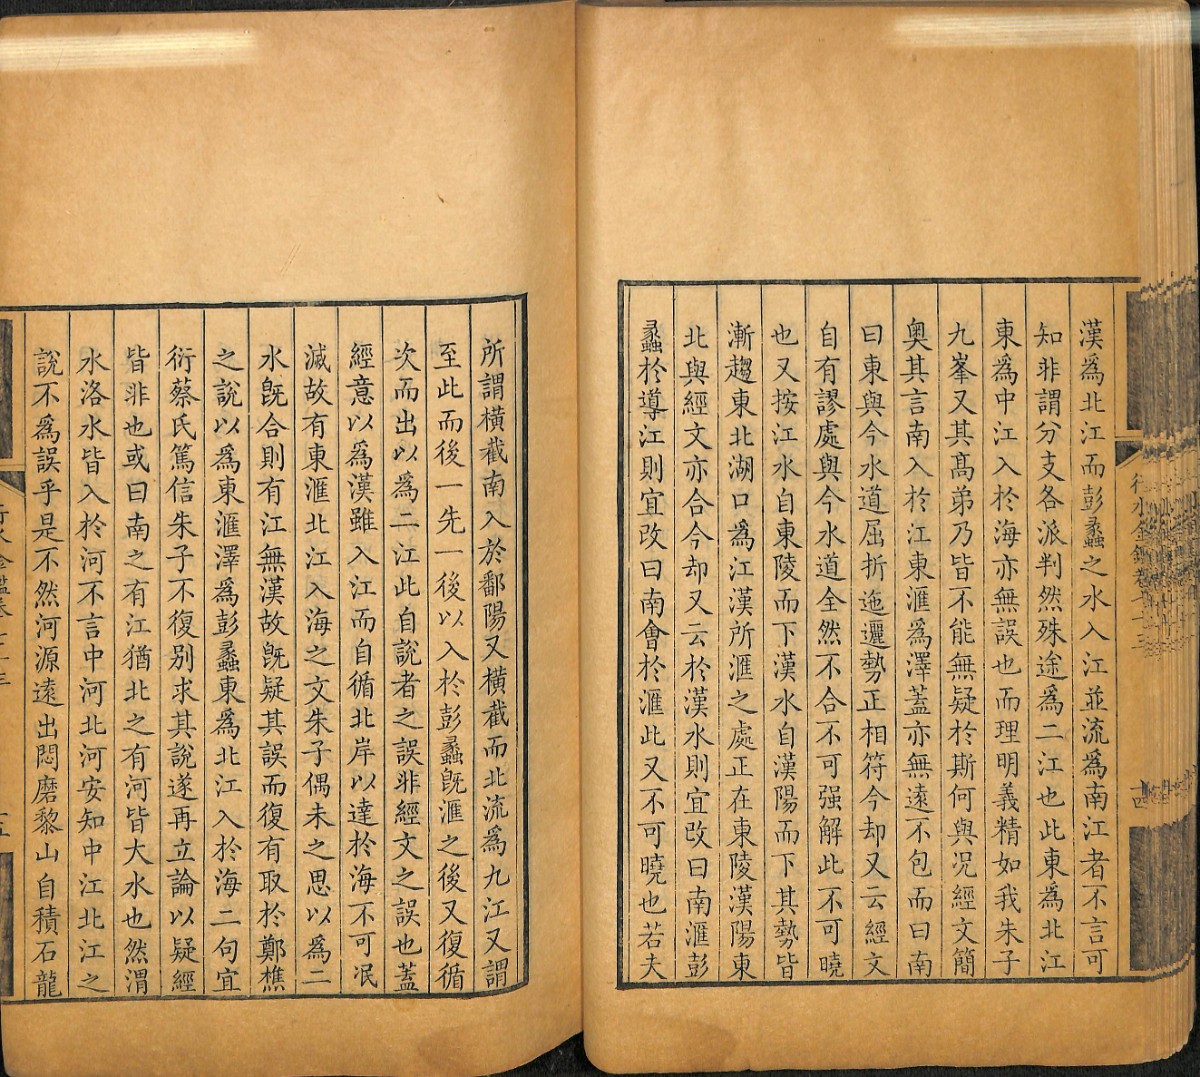 漢爲北江而彭蠡之水入江並流爲南江者不言可
知非謂分支各派判然殊途爲二江也此東爲北江
東爲中江入於海亦無誤也而理明義精如我朱子
九峯又其高弟乃皆不能無疑於斯何與况經文簡
奧其言南入於江東滙爲澤蓋亦無遠不包而曰南
曰東與今水道屈折迤邐勢正相符今却又云經文
自有謬處與今水道全然不合不可强解此不可曉
也又按江水自東陵而下漢水自漢陽而下其勢皆
漸趨東北湖口爲江漢所滙之處正在東陵漢陽東
北與經文亦合今却又云於漢水則宜改曰南滙彭
蠡於導江則宜改曰南會於滙此又不可曉也若夫
行水金鑑卷七十三
十四
所謂橫截南入於鄱陽又橫截而北流爲九江又謂
至此而後一先一後以入於彭蠡旣滙之後又復循
次而出以爲二江此自說者之誤非經文之誤也蓋
經意以爲漢雖入江而自循北岸以達於海不可泯
滅故有東滙北江入海之文朱子偶未之思以爲二
水旣合則有江無漢故旣疑其誤而復有取於鄭樵
之說以爲東滙澤爲彭蠡東爲北江入於海二句宜
衍蔡氏篤信朱子不復別求其說遂再立論以疑經
皆非也或曰南之有江猶北之有河皆大水也然渭
水洛水皆入於河不言中河北河安知中江北江之
說不爲誤乎是不然河源遠出悶磨黎山自積石龍